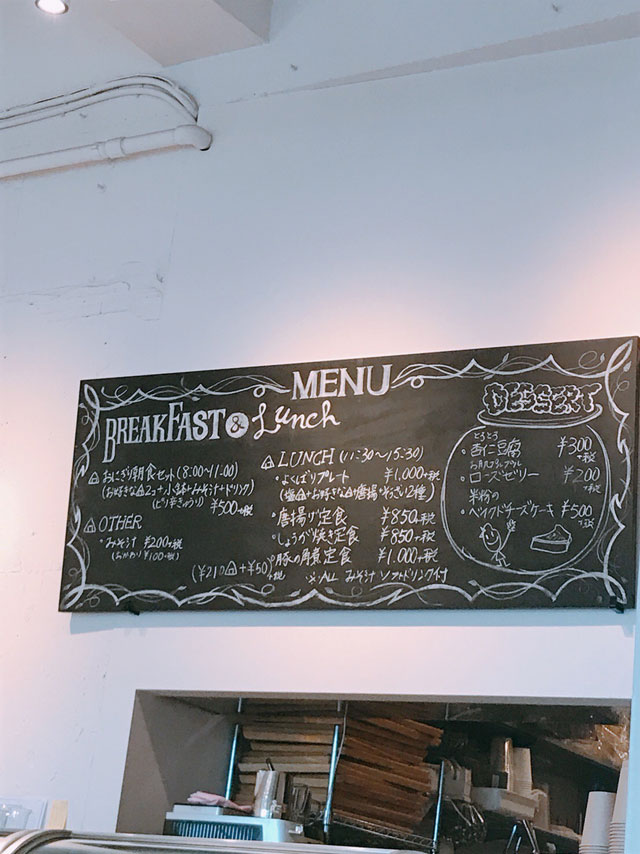 MENU
BREAKFAST & Lunch
おにぎり朝食セット(8:00~11:00)
(お好きな 2コ+小鉢+みそ汁+ドリンク)
(ピリ辛きゅうり) ¥500+税
OTHER
・みそ汁 ¥200+税
(おかわり ¥100+税)
LUNCH (11:30~15:30)
・よくばりプレート ¥1,000+税
(塩 +お好きな 唐揚 そうざい2種)
・唐揚げ定食 ¥850+税
・しょうが焼き定食 ¥850+税
・豚の角煮定食 ¥1,000+税
(¥210 +¥50)+税
※ALL みそ汁 ソフトドリンク付
DESSERT
とろとろ
・杏仁豆腐 ¥300+税
・ローズゼリー ¥200+税
米粉の
・ベイクドチーズケーキ ¥500+税